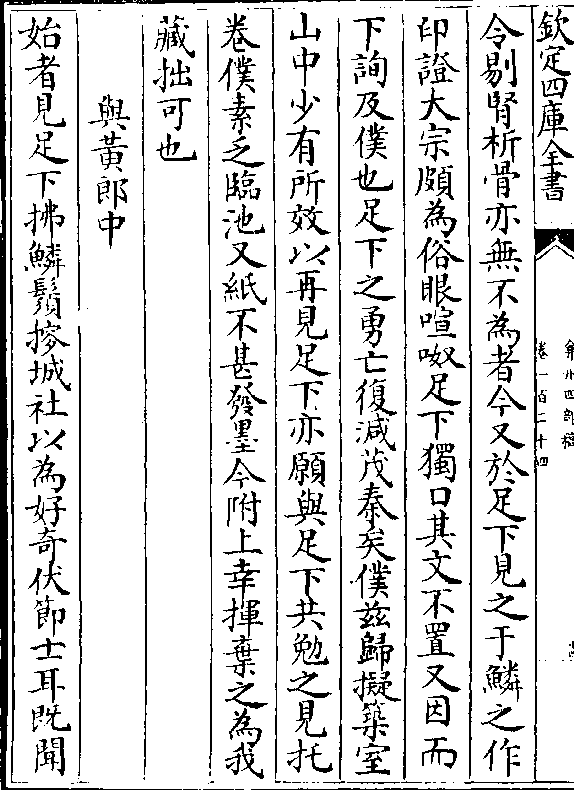 欽定四庫全書
弇州四部稿
卷一百二十四
令剔腎析骨亦無不為者今又於足下見之于鱗之作
印證大宗頗為俗眼喧呶足下獨口其文不置又因而
下詢及僕也足下之勇亡復減茂秦矣僕兹歸擬築室
山中少有所效以再見足下亦願與足下共勉之見托
卷僕素乏臨池又紙不甚發墨今附上幸揮棄之為我
藏拙可也
與黄郎中
始者見足下拂鱗鬚摉城社以為好奇伏節士耳既聞